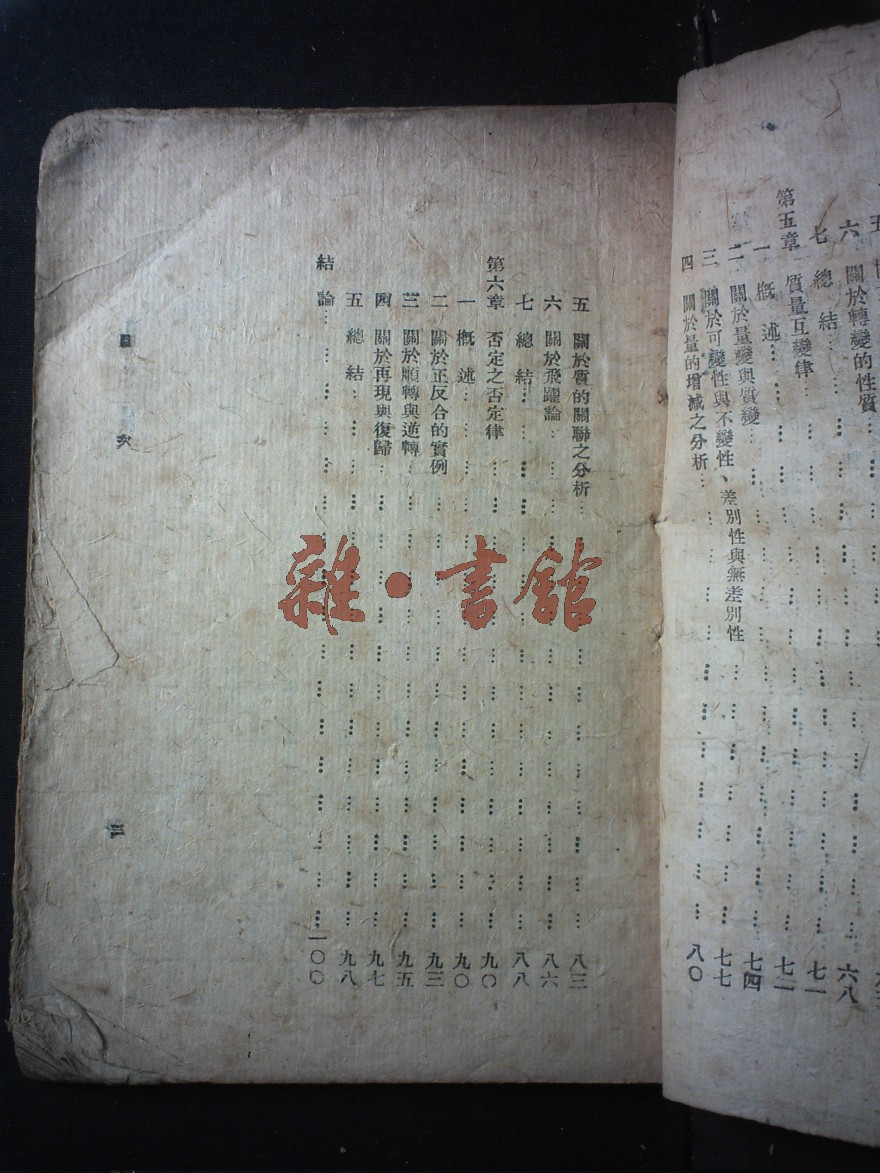 六 關於轉變的性質……六八
七 總結……七一
第五章 質量互變律……七二
一 概述……七二
二 關於量變與質變……七四
三 關於可變性與不變性、差別性與無差別性……七七
四 關於量的增減之分析……八〇
五 關於質的關聯之分析……八三
六 關於飛躍論……八六
七 總結……八八
第六章 否定之否定律……九〇
一 概述……九〇
二 關於正反合的實例……九三
三 關於順轉與逆轉……九五
四 關於再現與復歸……九七
五 總結……九八
結論……一〇〇
雜·書館